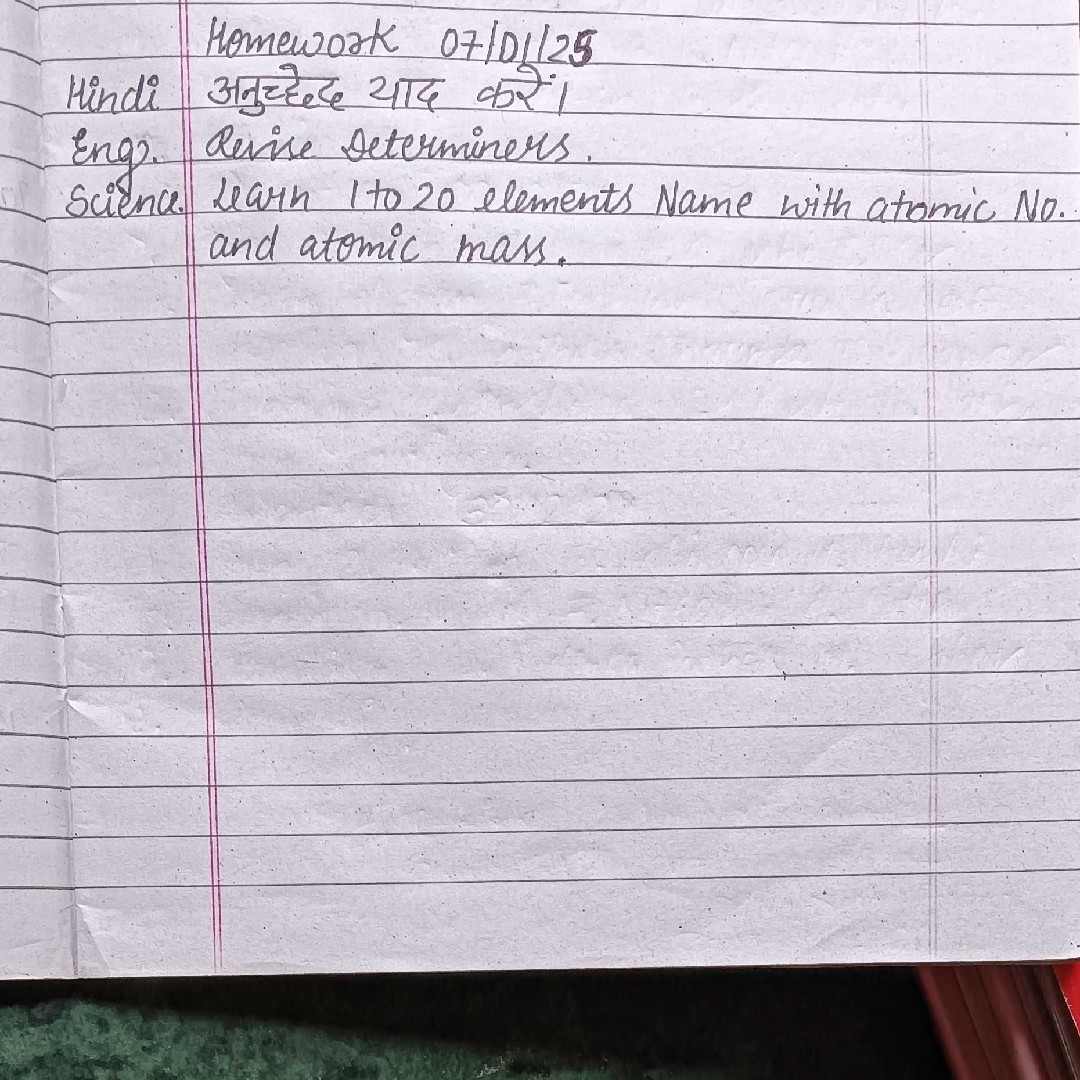 Homework 07/01/25
Hindi अनुच्छेद याद करें।
Eng. Revise Determiners.
Science. Learn 1 to 20 elements Name with atomic No.
and atomic mass.